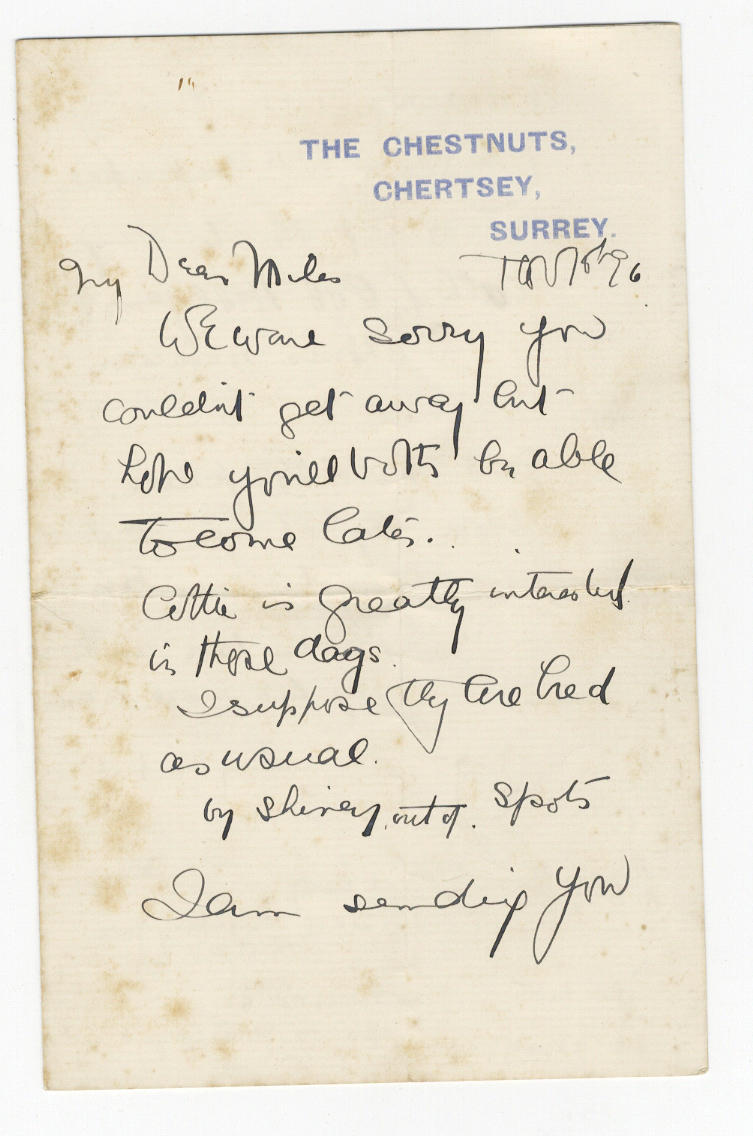 THE CHESTNUTS,
CHERTSEY,
SURREY.
My Dear Miles
We were sorry you
couldn't get away but
hope you'll both be able
to come later.
is greatly interested
in those dogs.
I suppose they are bred
as usual.
by Shiney out of Spots
I am sending you